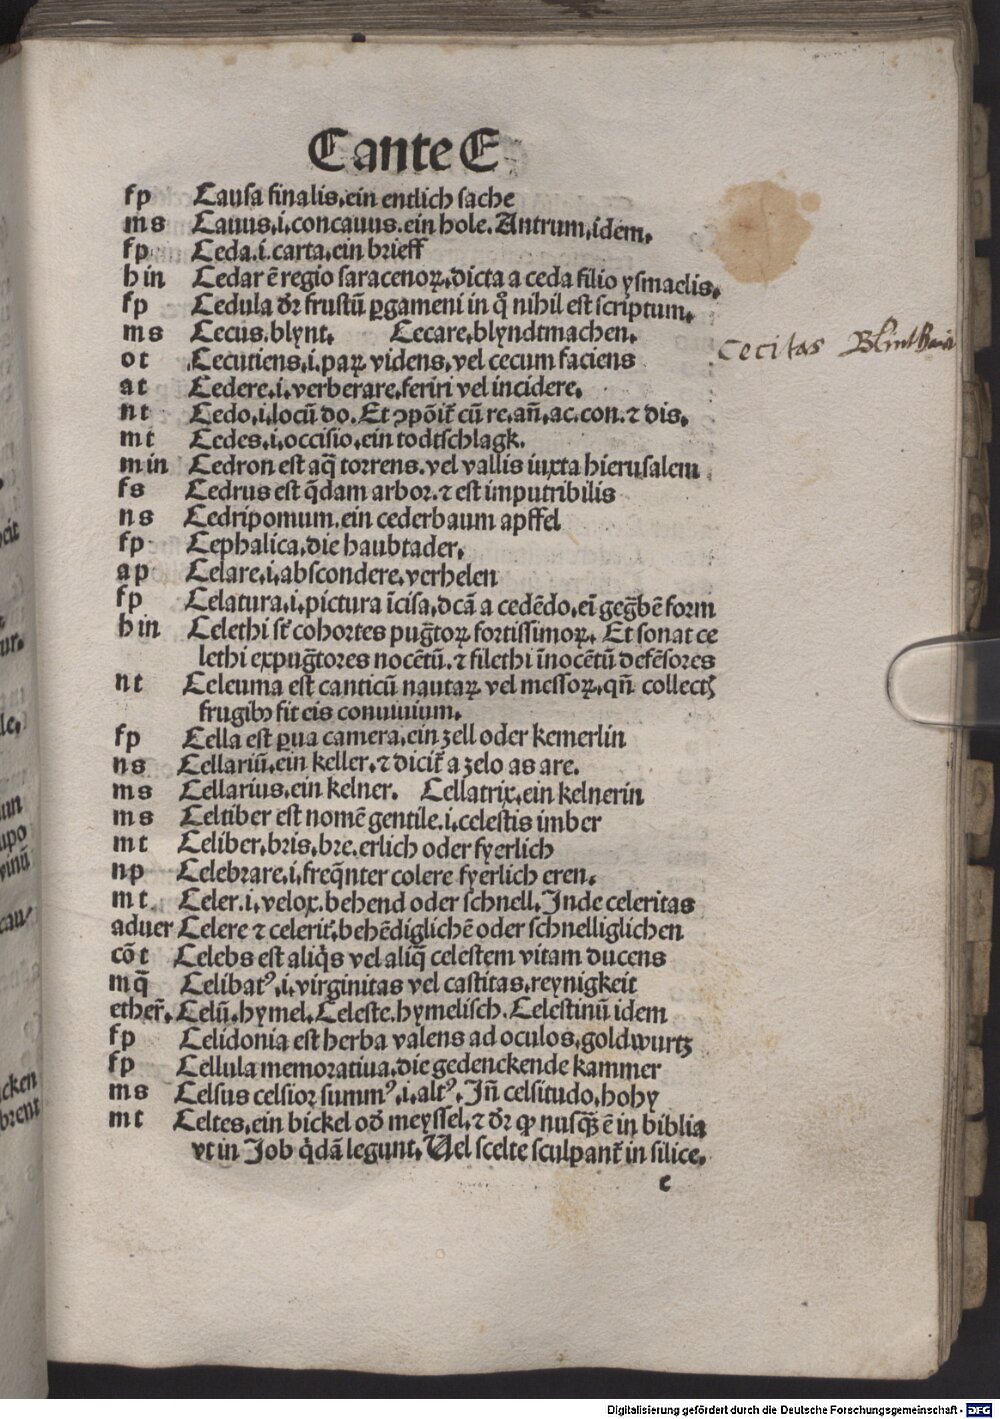 C ante E
fp Causa finalis.ein entlich sache
ms Cauus.i.concauus.ein hole.Antrum.idem.
fp Ceda.i.carta.ein brieff
hin Cedar ē regio saracenoꝝ.dicta a ceda filio ysmaelis.
fp Cedula dr̄ frustū ꝑgameni in q̊ nihil est scriptum.
ms Cecus.blynt. Cecare.blyndtmachen.
Cecitas Blint
ot Cecutiens.i.paꝝ videns.vel cecum faciens
at Cedere.i.verberare.feriri vel incidere.
nt Cedo.i.locū do.Et ꝯpōit̄ cū re.an̄.ac.con.⁊ dis.
mt Cedes.i.occisio.ein todtschlagk.
min Cedron est aq̄ torrens.vel vallis iuxta hierusalem
fs Cedrus est q̄dam arbor.⁊ est imputribilis
ns Cedripomum.ein cederbaum apffel
fp Cephalica.die haubtader.
ap Celare.i.abscondere.verhelen
fp Celatura.i.pictura īcisa.dcā a cedēdo.eī geḡbē form
hin Celethi st̄ cohortes puḡtoꝝ fortissimoꝝ. Et sonat ce
lethi expuḡtores nocētū.⁊ filethi īnocētū defēsores
nt Celeuma est canticū nautaꝝ vel messoꝝ.qn̄ collectꝭ
frugibꝰ fit eis conuiuium.
fp Cella est ꝑua camera.ein zell oder kemerlin
ns Cellariū.ein keller.⁊ dicit̄ a zelo as are.
ms Cellarius.ein kelner. Cellatrix.ein kelnerin
ms Celtiber est nomē gentile.i.celestis imber
mt Celiber.bris.bre.erlich oder fyerlich
np Celebrare.i.freq̄nter colere fyerlich eren.
mt Celer.i.velox.behend oder schnell.Inde celeritas
aduer Celere ⁊ celerit̄.behēdiglichē oder schnelliglichen
cōt Celebs est aliq̇s vel aliq̄ celestem vitam ducens
mq̄ Celibatꝰ.i.virginitas vel castitas.reynigkeit
ether̄. Celū.hymel.Celeste.hymelisch.Celestinū idem
fp Celidonia est herba valens ad oculos.goldwurtz
fp Cellula memoratiua.die gedenckende kammer
ms Celsus celsior summꝰ.i.altꝰ.In̄ celsitudo.hohy
mt Celtes.ein bickel od̄ meyssel.⁊ dr̄ ꝙ nusq̄ꝫ ē in biblia
vt in Job q̇dā legunt.Vel scelte sculpant̄ in silice.
c
Digitalisierung gefördert durch die Deutsche Forschungsgemeinschaft - DFG